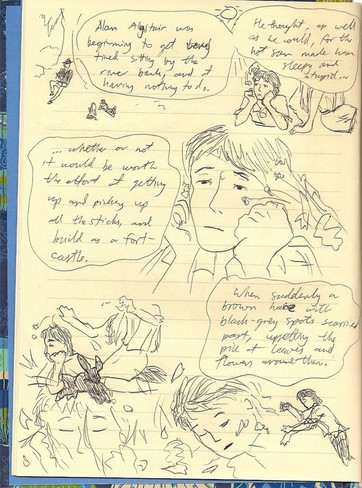 Alan Alastair was
beginning to get
tired sitting by the
river bank, and of
having nothing to do.
He thought, as well
as he could, for the
hot sun made him
sleepy and
stupid...
... whether or not
it would be worth
the effort of getting
up and picking up
all the sticks, and
build as a fort-
castle.
When suddenly a
brown hare with
black-grey spots scurried
past, upsetting the
pile of leaves and
flowers around them.